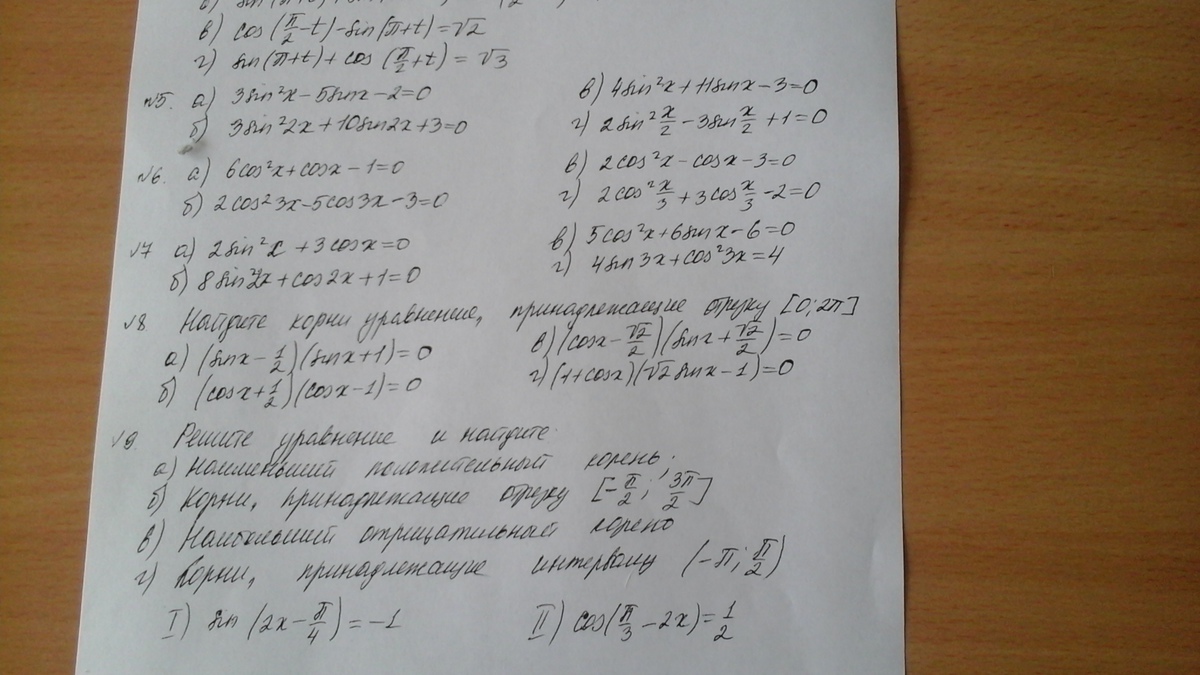 в) cos(π/2 - t) - sin(π+t) = √2
г) sin(π+t) + cos(π/2 + t) = √3
№5. а) 3sin²x - 5sinx - 2 = 0 в) 4sin²x + 11sinx - 3 = 0
б) 3sin²2x + 10sin2x + 3 = 0 г) 2sin² x/2 - 3sin x/2 + 1 = 0
№6. а) 6cos²x + cosx - 1 = 0 в) 2cos²x - cosx - 3 = 0
б) 2cos²3x - 5cos3x - 3 = 0 г) 2cos² x/3 + 3cos x/3 - 2 = 0
№7 а) 2sin²x + 3cosx = 0 в) 5cos²x + 6sinx - 6 = 0
б) 8sin²2x + cos2x + 1 = 0 г) 4sin3x + cos²3x = 4
№8 Найдите корни уравнение, принадлежащие отрезку [0; 2π]
а) (sinx - 1/2)(sinx + 1) = 0 в) (cosx - √2/2)(sinx + √2/2) = 0
б) (cosx + 1/2)(cosx - 1) = 0 г) (1 + cosx)(√2 sinx - 1) = 0
№9. Решите уравнение и найдите:
а) Наименьший положительный корень;
б) Корни, принадлежащие отрезку [-π/2; 3π/2]
в) Наибольший отрицательный корень
г) Корни, принадлежащие интервалу (-π; π/2)
I) sin(2x - π/4) = -1 II) cos(π/3 - 2x) = 1/2